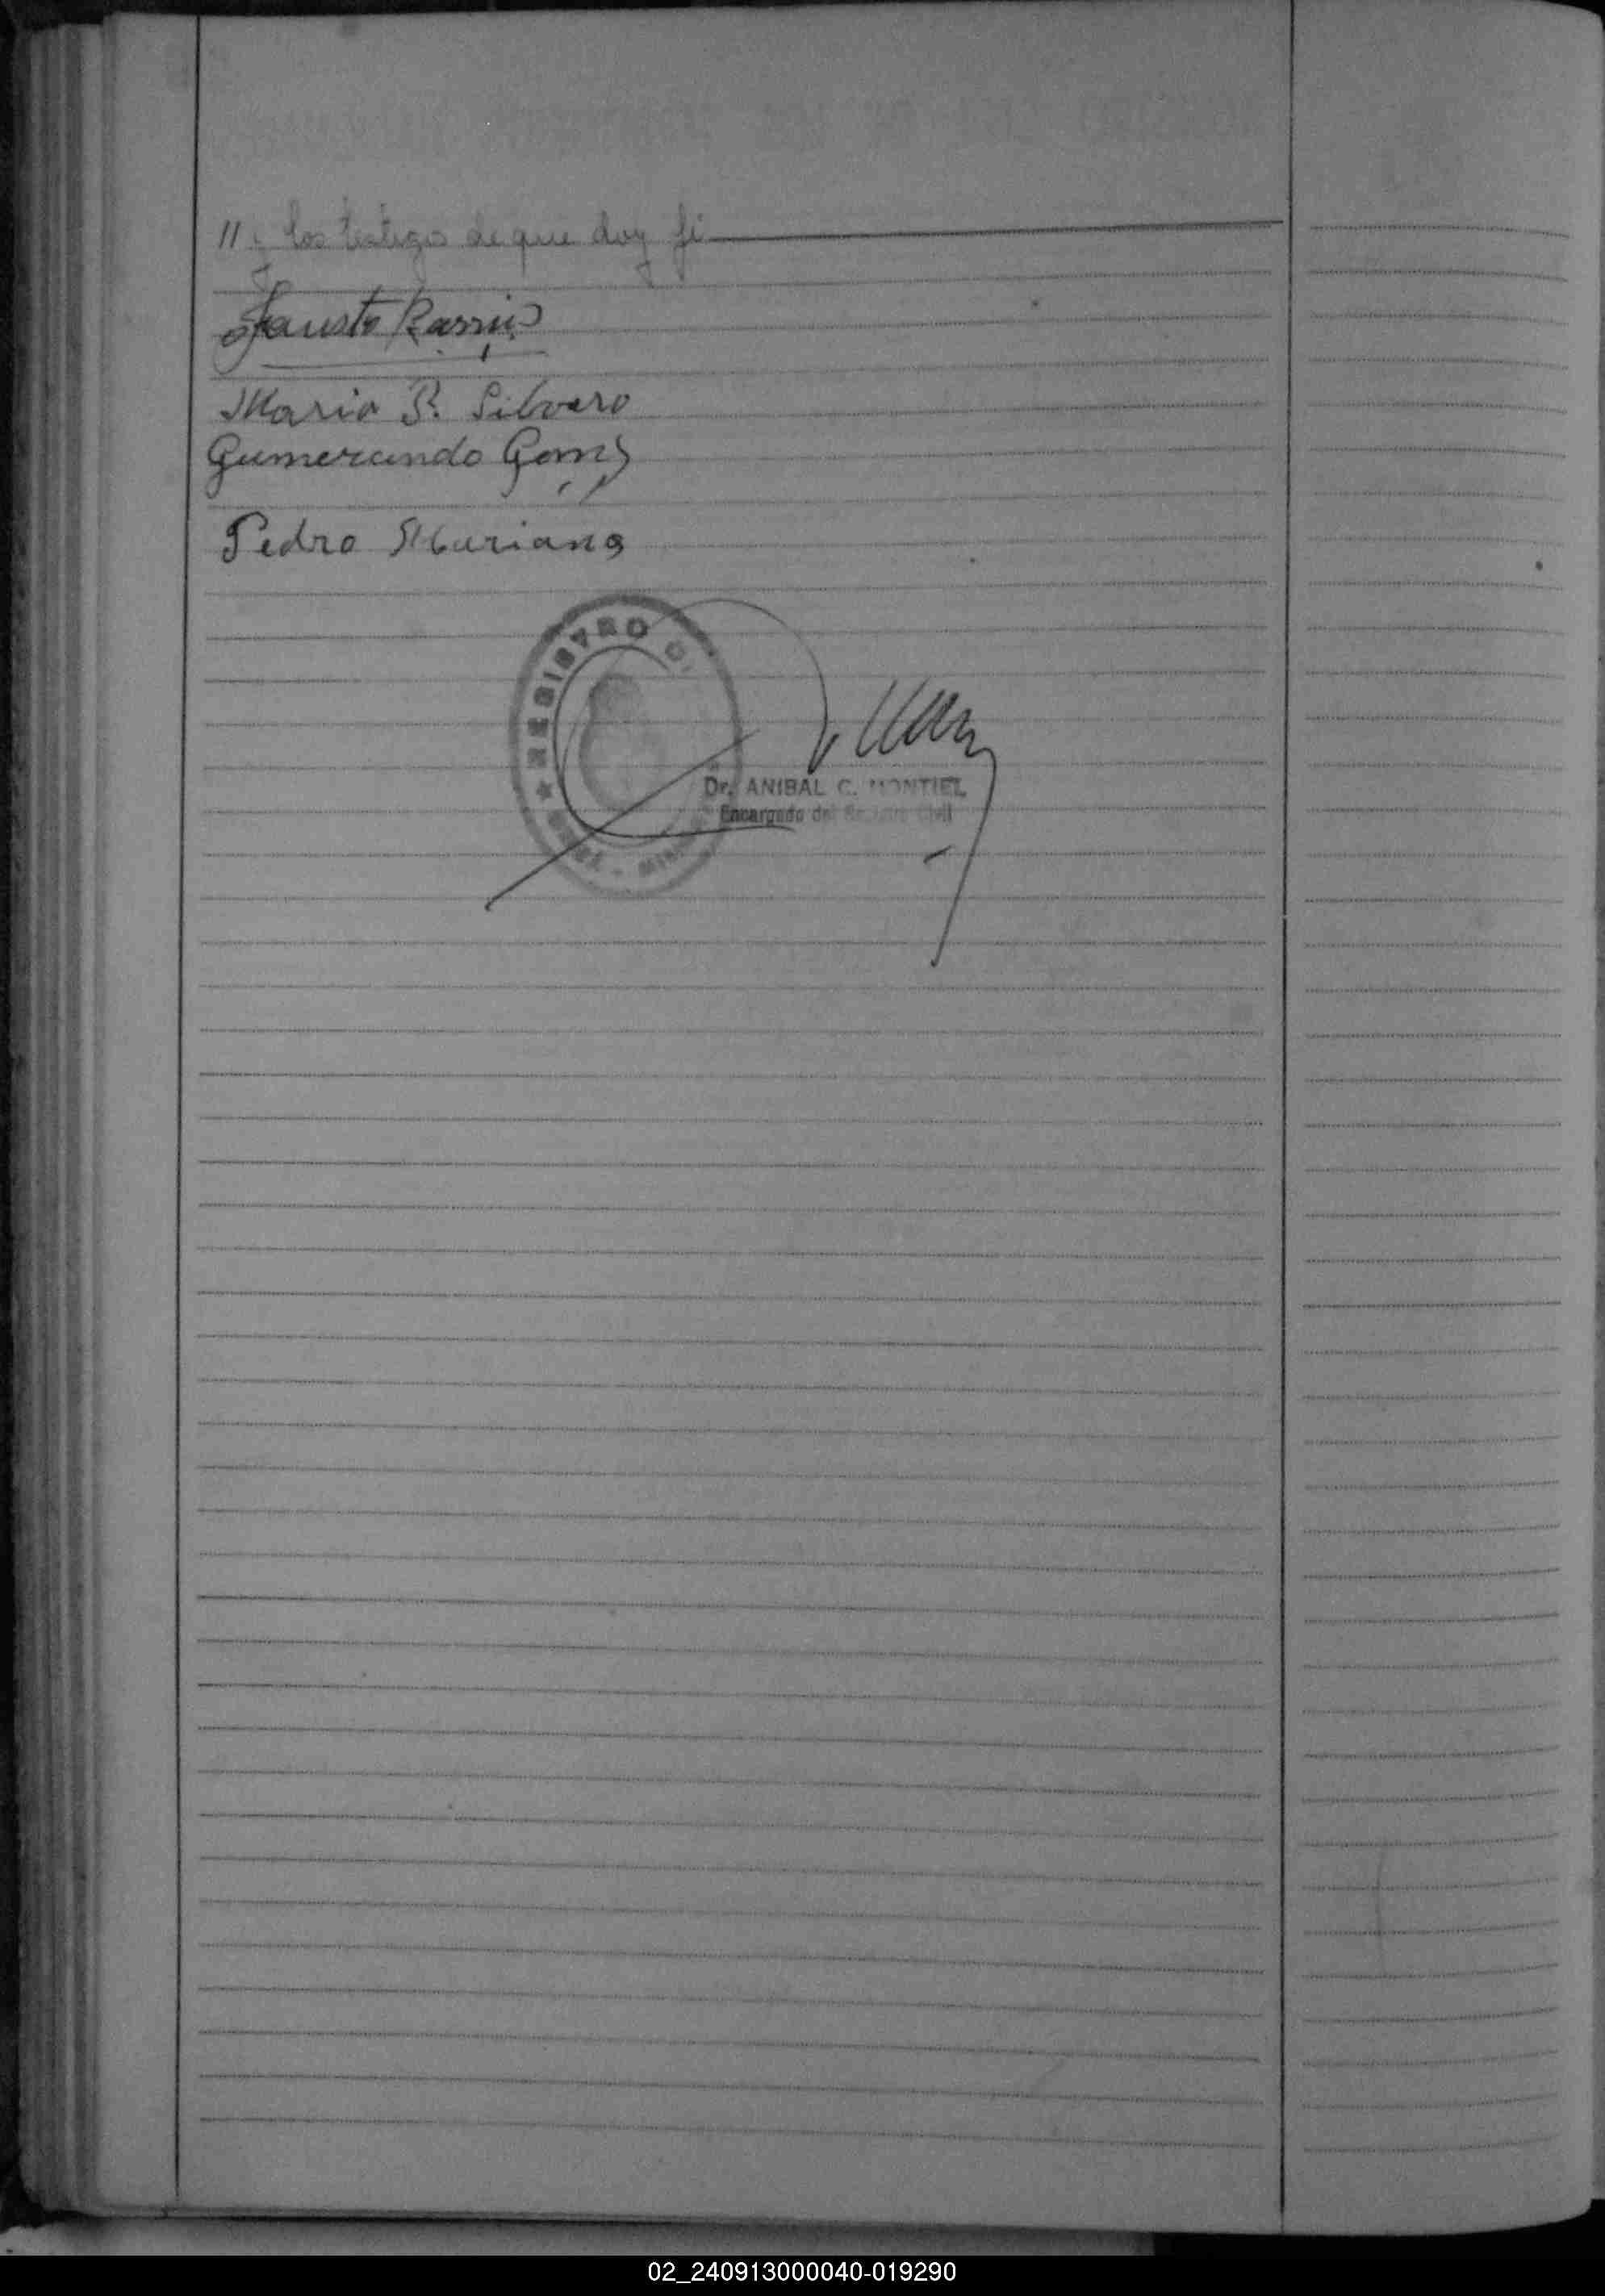 // y los testigos de que doy fe
Fausto Barrios
Maria S. Silvero
Gumercindo Gomez
Pedro Mariano
★ REGISTRO
Dr. ANIBAL C. MONTIEL
Encargado del Registro Civil
02_240913000040-019290